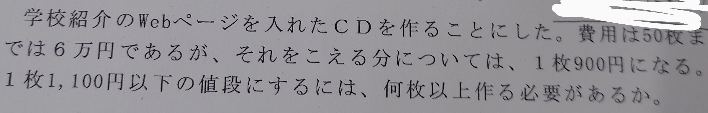 学校紹介のWebページを入れたＣＤを作ることにした。費用は50枚ま
では６万円であるが、それをこえる分については、１枚900円になる。
１枚1,100円以下の値段にするには、何枚以上作る必要があるか。